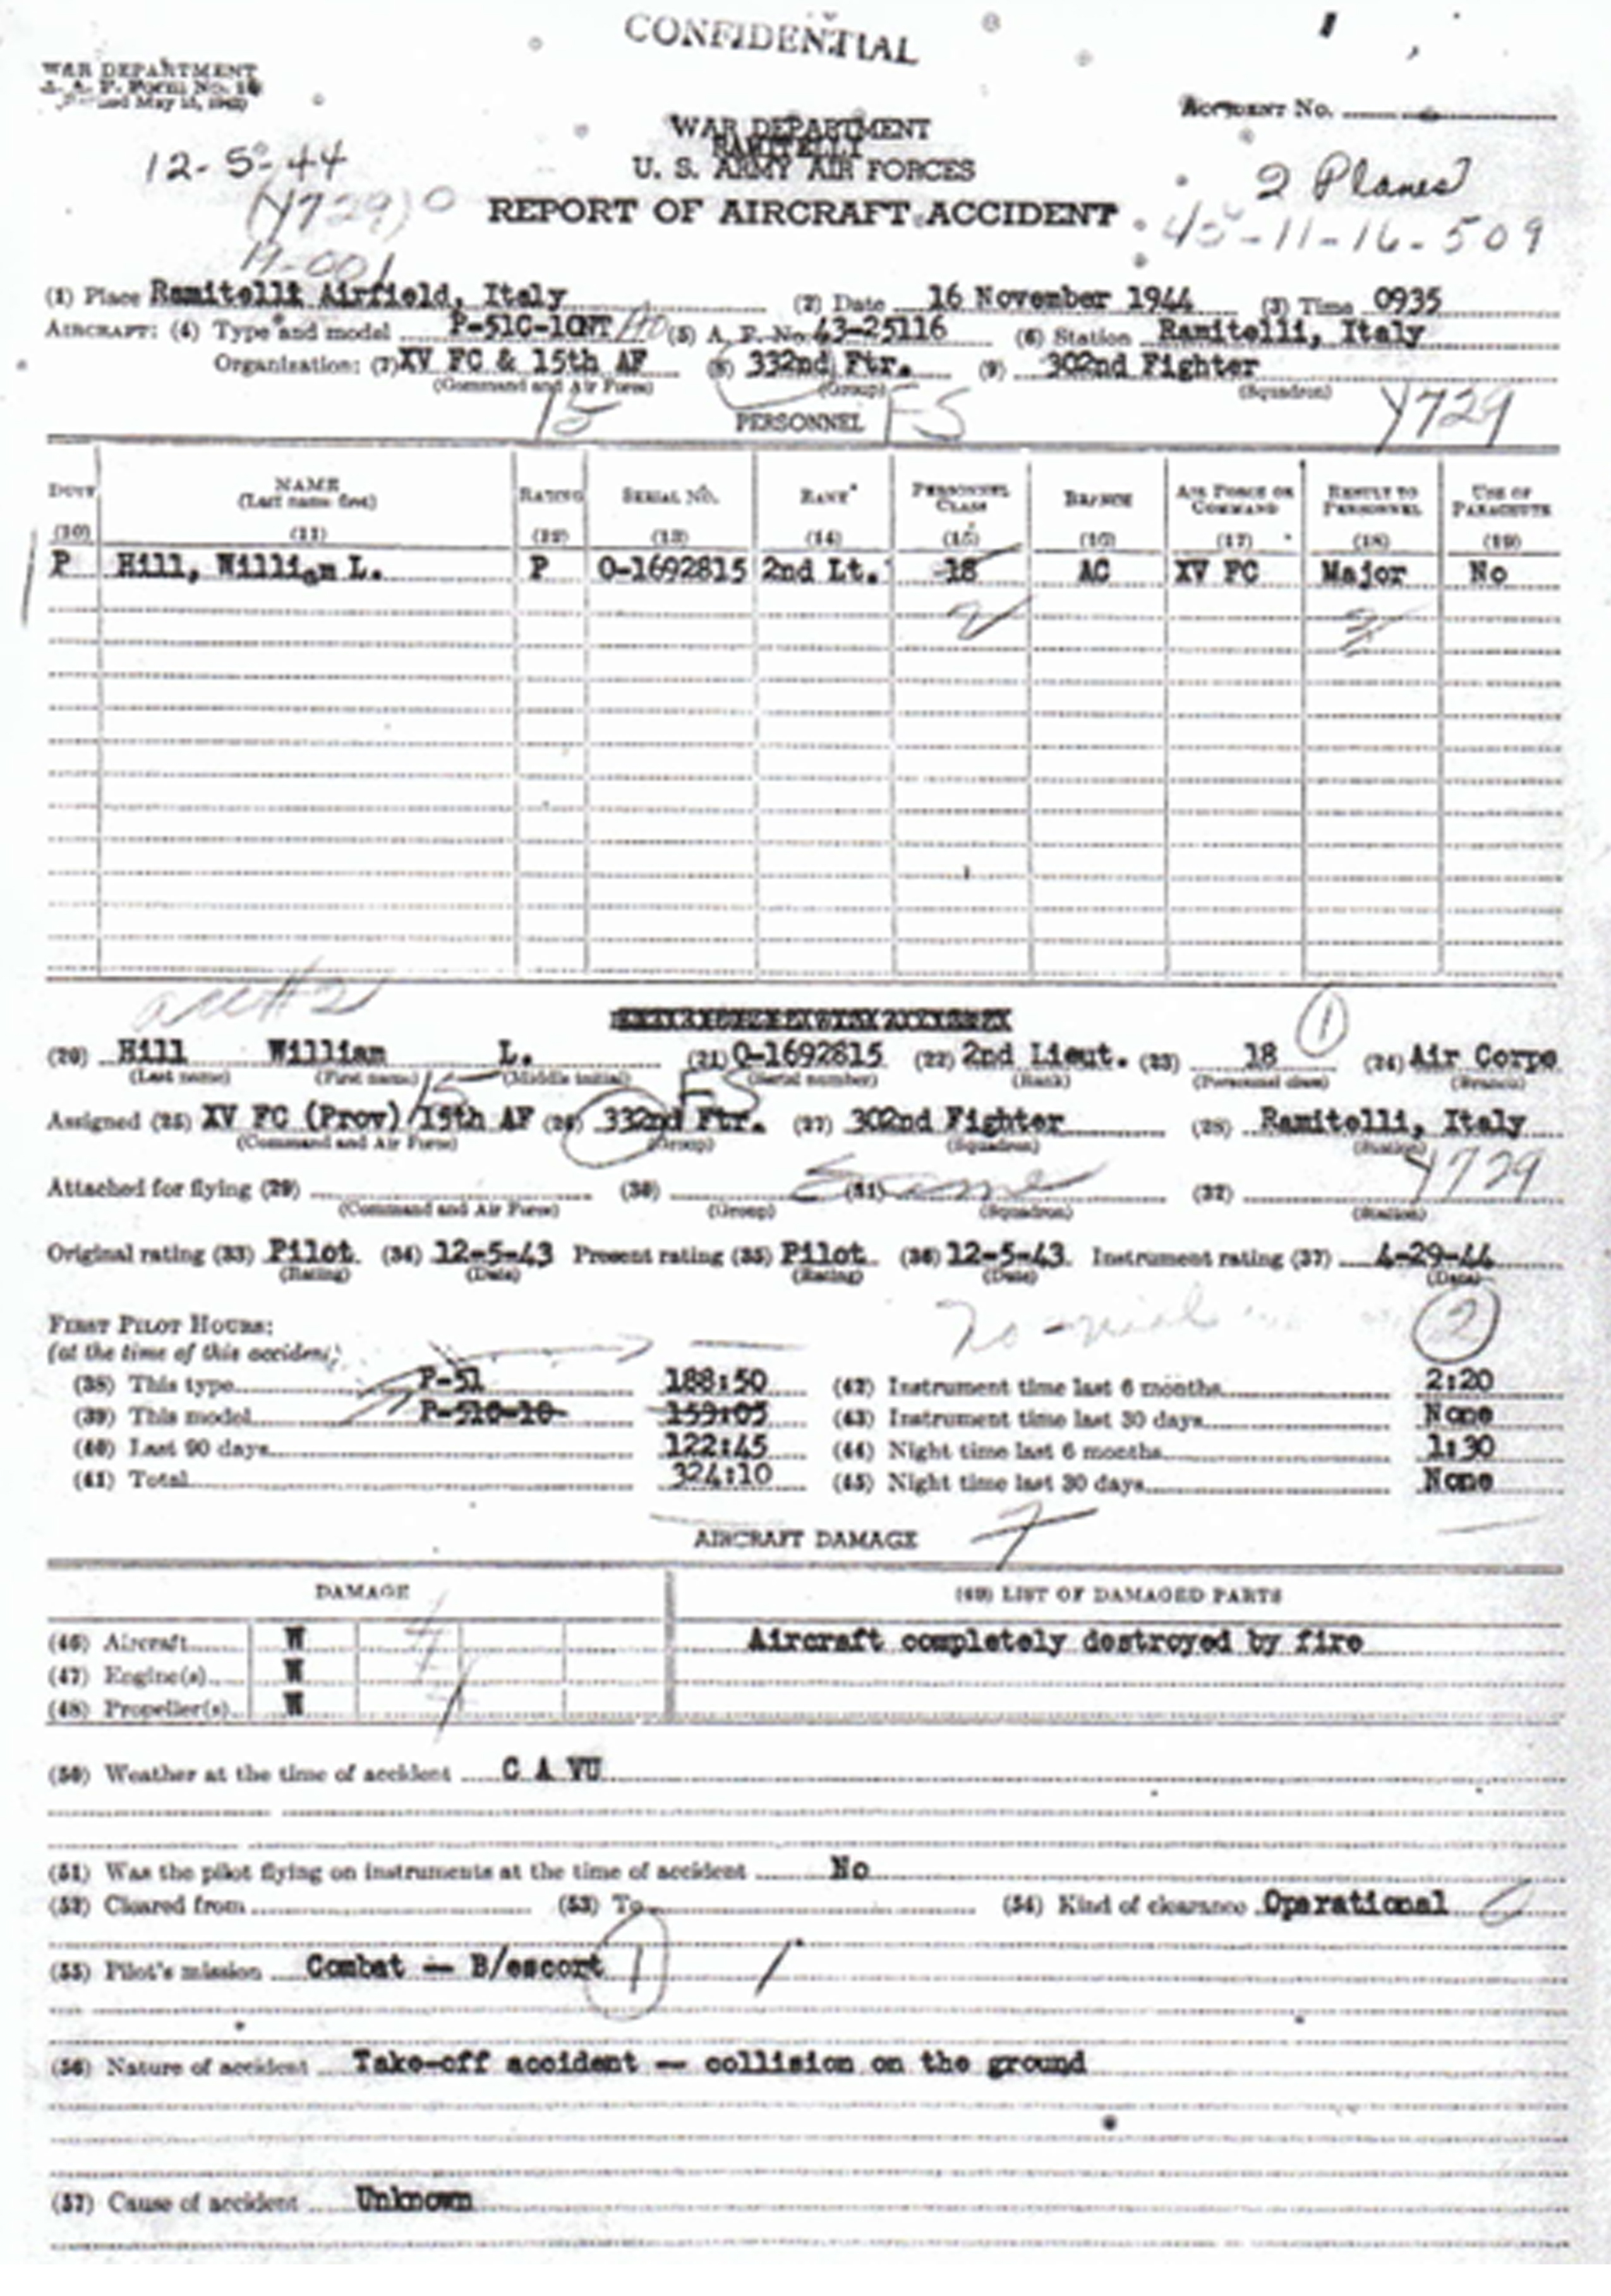 CONFIDENTIAL
WAR DEPARTMENT
A. A. F. Form No. 14
May 15, 1942)
ACCIDENT No.
WAR DEPARTMENT
RAMITELLI
U. S. ARMY AIR FORCES
12-5-44
2 Planes
(Y729) O
REPORT OF AIRCRAFT ACCIDENT
45-11-16-509
(1) Place Ramitelli Airfield, Italy (2) Date 16 November 1944 (3) Time 0935
AIRCRAFT: (4) Type and model P-51C-10NT (5) A. F. No. 43-25116 (6) Station Ramitelli, Italy
Organization: (7) XV FC & 15th AF (8) 332nd Ftr. (9) 302nd Fighter
(Command and Air Force) (Group) (Squadron)
15 PERSONNEL FS Y729
DUTY NAME (Last name first) RATING SERIAL NO. RANK PERSONNEL CLASS BRANCH AIR FORCE OR COMMAND RESULT TO PERSONNEL USE OF PARACHUTE
(10) (11) (12) (13) (14) (15) (16) (17) (18) (19)
P Hill, William L. P O-1692815 2nd Lt. 18 AC XV FC Major No
2 3
acc#2
1
(20) Hill William L. (21) O-1692815 (22) 2nd Lieut. (23) 18 (24) Air Corps
(Last name) (First name) (Middle initial) (Serial number) (Rank) (Personnel class) (Branch)
15 FS
Assigned (25) XV FC (Prov) 15th AF (26) 332nd Ftr. (27) 302nd Fighter (28) Ramitelli, Italy
(Command and Air Force) (Group) (Squadron) (Station)
Attached for flying (29) (30) (31) Same (32) Y729
(Command and Air Force) (Group) (Squadron) (Station)
Original rating (33) Pilot (34) 12-5-43 Present rating (35) Pilot (36) 12-5-43 Instrument rating (37) 4-29-44
(Rating) (Date) (Rating) (Date) (Date)
FIRST PILOT HOURS: 2
(at the time of this accident)
(38) This type P-51 188:50 (42) Instrument time last 6 months 2:20
(39) This model P-51C-10 159:05 (43) Instrument time last 30 days None
(40) Last 90 days 122:45 (44) Night time last 6 months 1:30
(41) Total 324:10 (45) Night time last 30 days None
AIRCRAFT DAMAGE 7
DAMAGE (49) LIST OF DAMAGED PARTS
(46) Aircraft W Aircraft completely destroyed by fire
(47) Engine(s) W
(48) Propeller(s) W
(50) Weather at the time of accident C A VU
(51) Was the pilot flying on instruments at the time of accident No
(52) Cleared from (53) To (54) Kind of clearance Operational
(55) Pilot's mission Combat — B/escort 1
(56) Nature of accident Take-off accident — collision on the ground
(57) Cause of accident Unknown